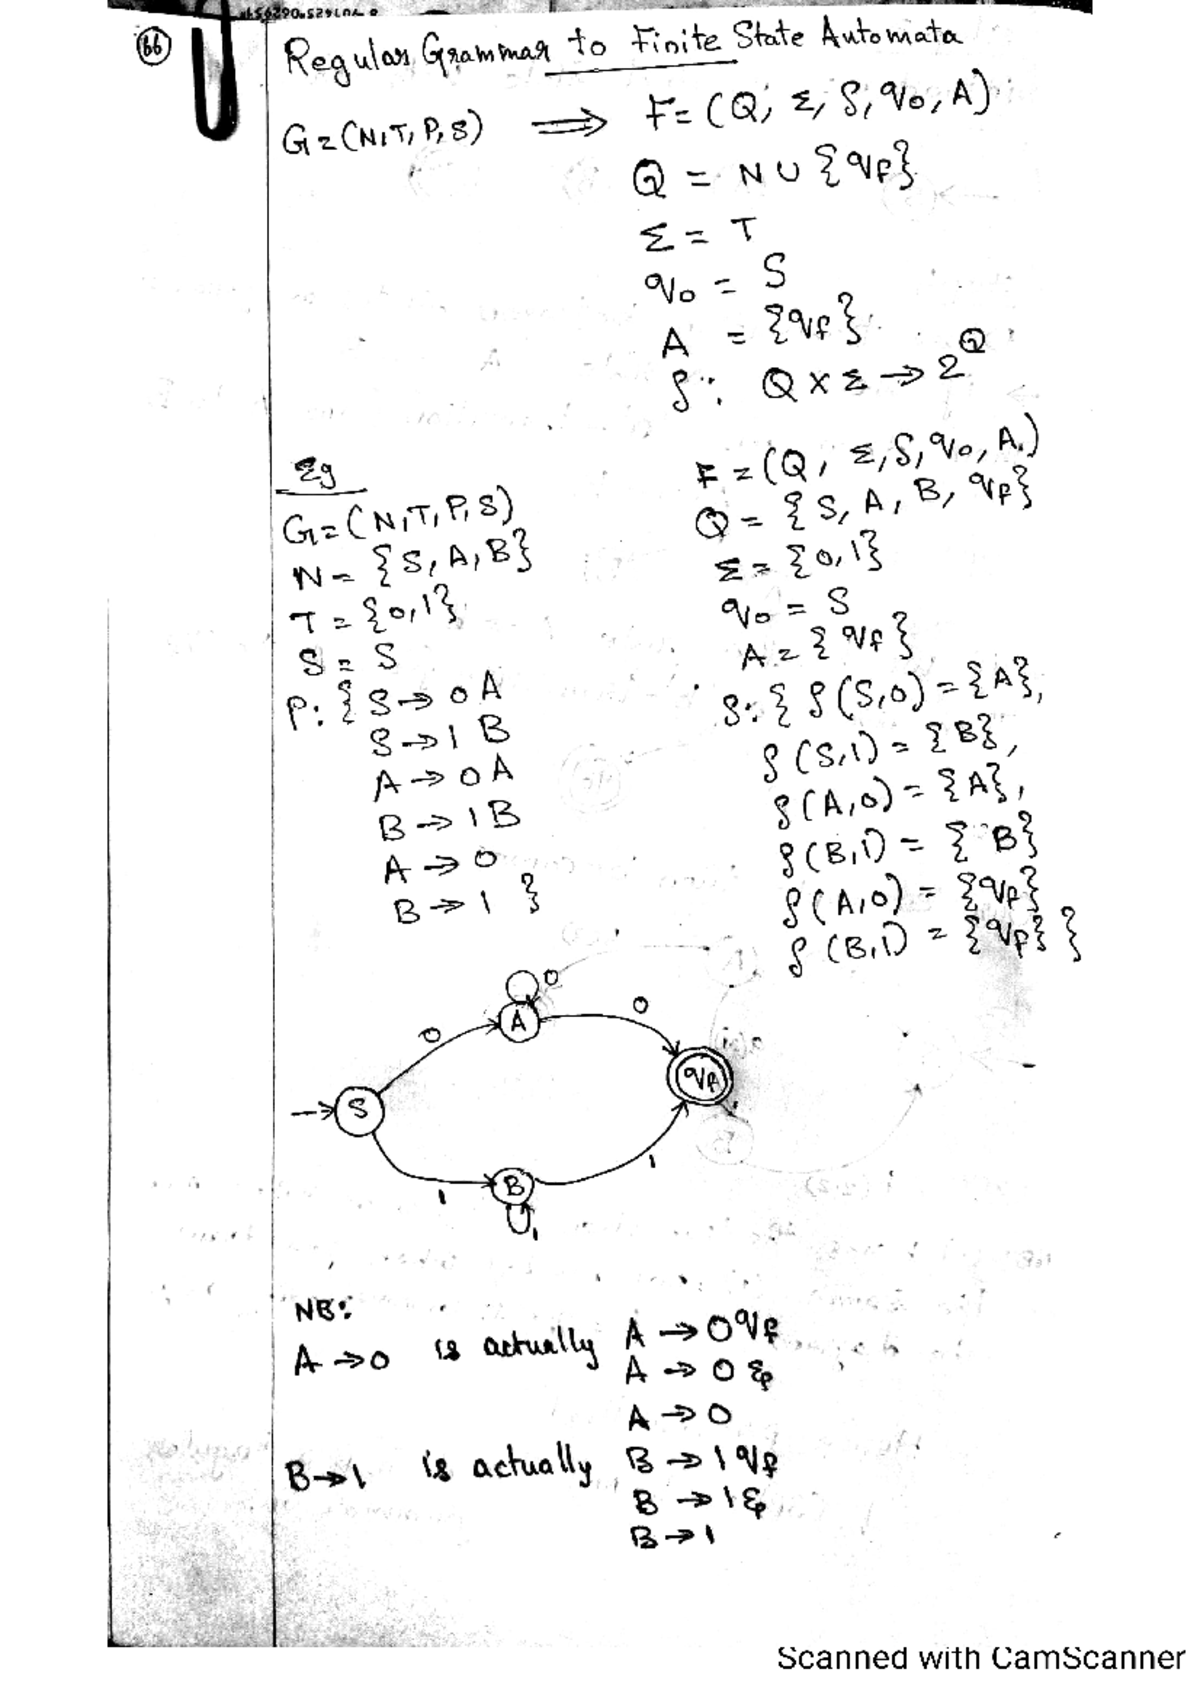 66
Regular Grammar to Finite State Automata
G = (N,T, P, S) ⟹ F = (Q, Σ, δ, q0, A)
Q = N ∪ {qf}
Σ = T
q0 = S
A = {qf}
δ: Q × Σ → 2^Q
Eg
G = (N,T, P, S)
N = {S, A, B}
T = {0,1}
S = S
P: {S → 0 A
S → 1 B
A → 0 A
B → 1 B
A → 0
B → 1 }
F = (Q, Σ, δ, q0, A.)
Q = {S, A, B, qf}
Σ = {0,1}
q0 = S
A = {qf}
δ: { δ(S,0) = {A},
δ(S,1) = {B},
δ(A,0) = {A},
δ(B,1) = {B}
δ(A,0) = {qf}
δ(B,1) = {qf} }
0
A
0
0
S
qf
1
B
1
1
NB:
A → 0 is actually A → 0 qf
A → 0 ε
A → 0
B → 1 is actually B → 1 qf
B → 1 ε
B → 1
Scanned with CamScanner